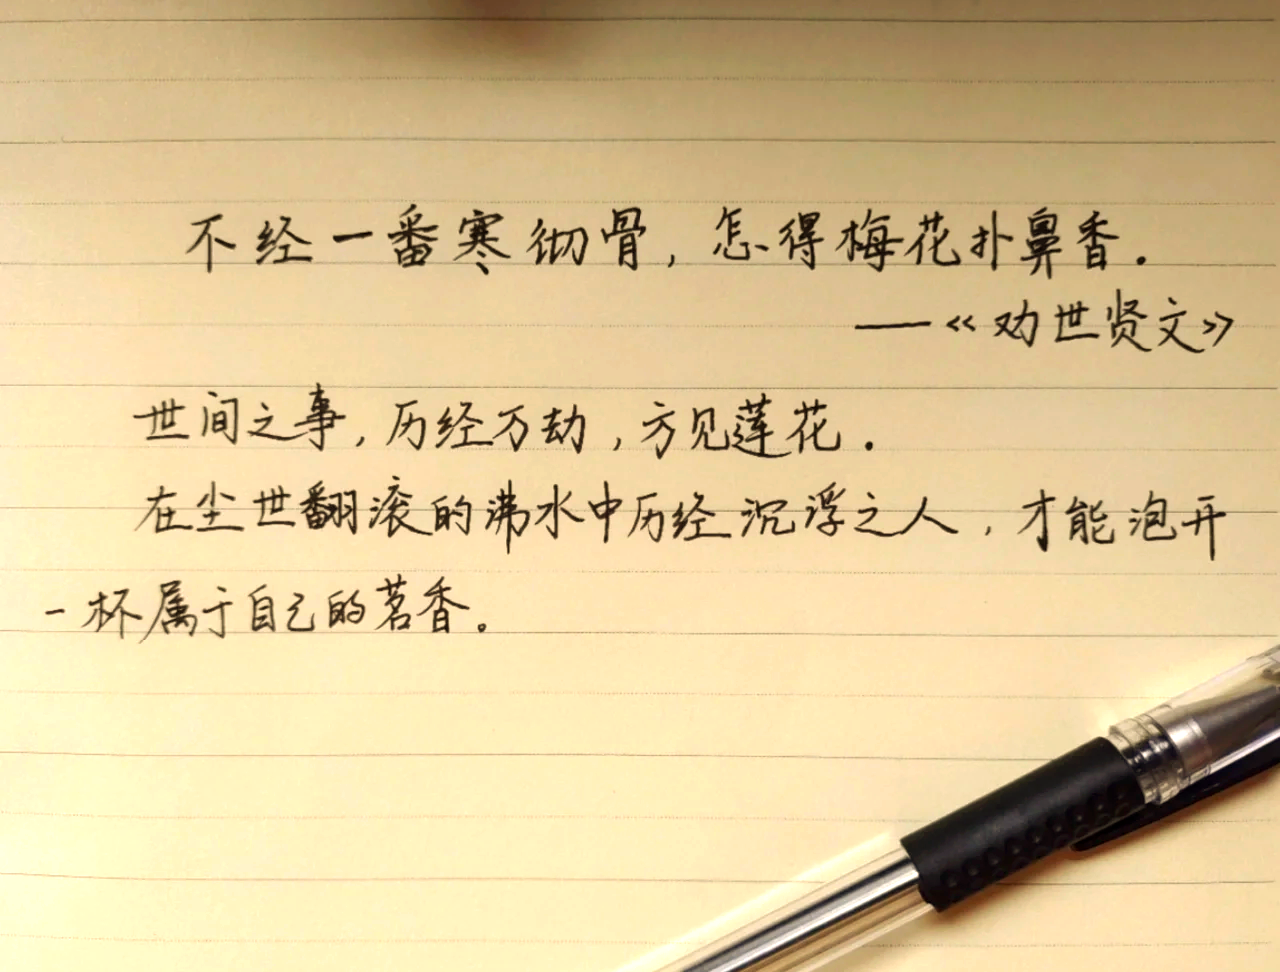 不经一番寒彻骨，怎得梅花扑鼻香.
——《劝世贤文》
世间之事，历经万劫，方见莲花.
在尘世翻滚的沸水中历经沉浮之人，才能泡开
一杯属于自己的茗香。